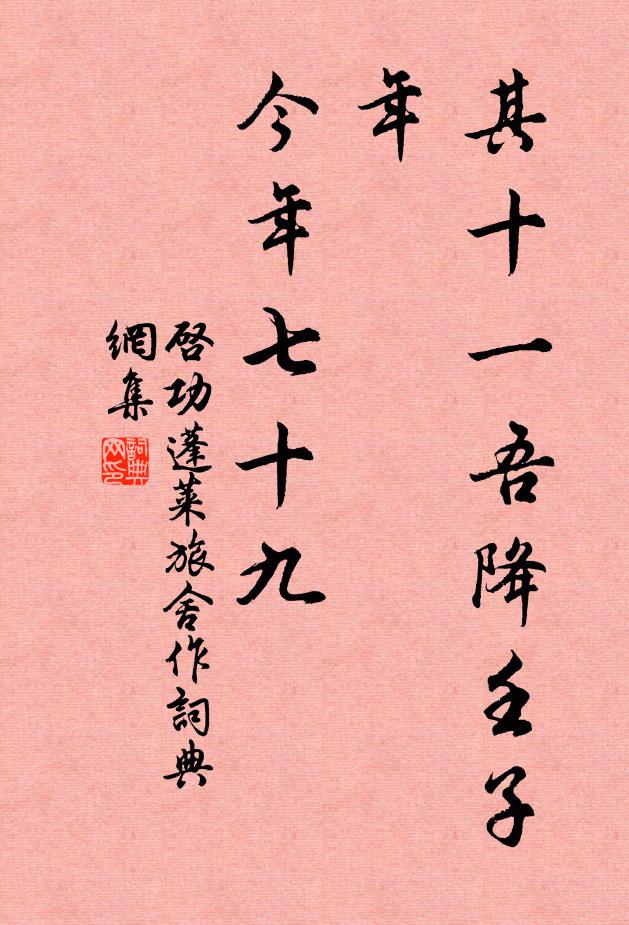 其十一吾降壬子
年
今年七十九
啓功蓬萊旅舍作詞典
網集
詞典
网印